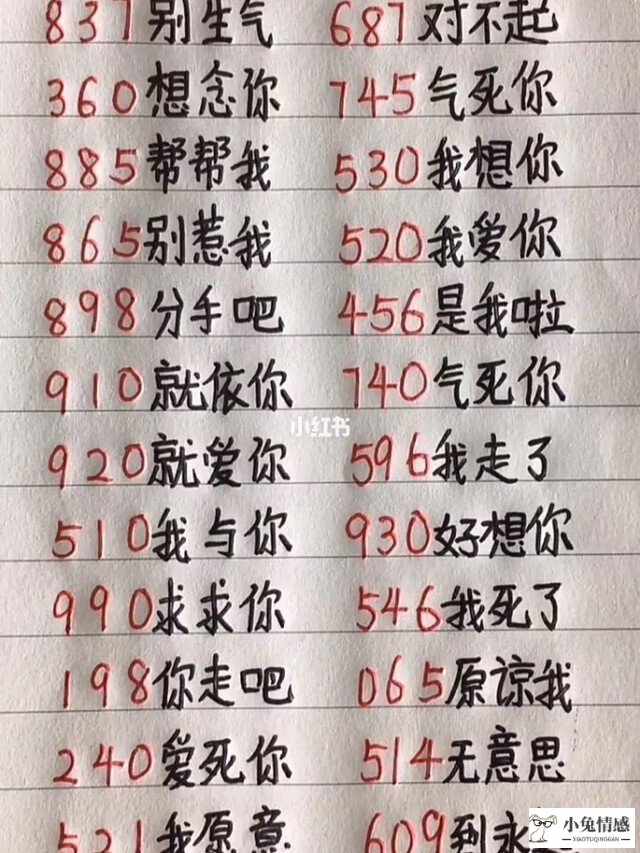 837别生气 687对不起
360想念你 745气死你
885帮帮我 530我想你
865别惹我 520我爱你
898分手吧 456是我啦
910就依你 740气死你
小红书
920就爱你 596我走了
510我与你 930好想你
990求求你 546我死了
198你走吧 065原谅我
240爱死你 514无意思
521我愿意 609到永
小兔情感
XIAOTUQINGGAN